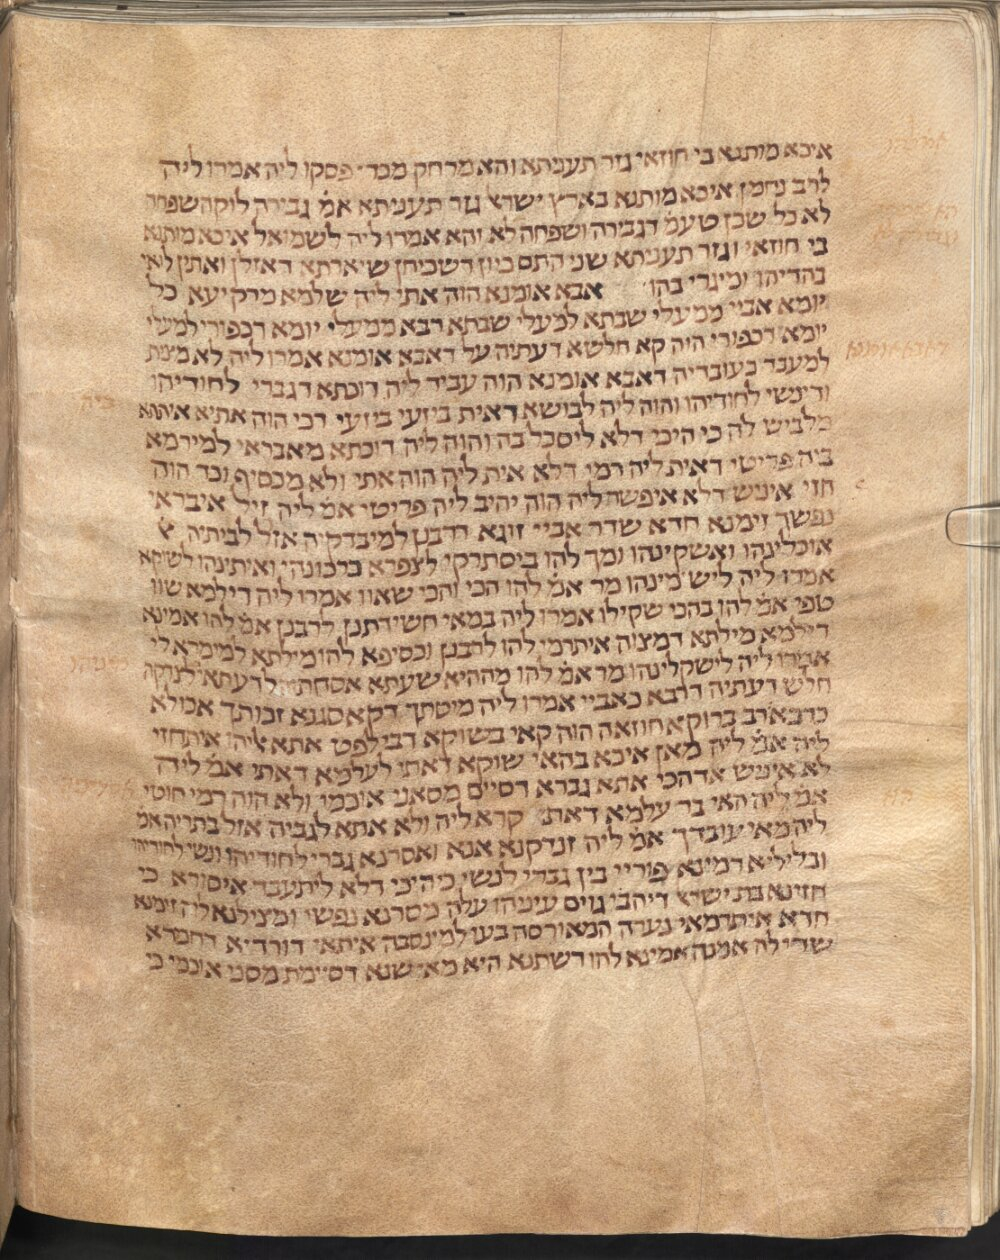 איכא מותנא בי חוזאי גזר תעניתא והא מרחק מכדי פסקו ליה אמרו ליה
לרב נחמן איכא מותנא בארץ ישרא׳ גזר תעניתא אמ׳ גבירה לוקה שפחה
לא כל שכן טעמ׳ דגבירה ושפחה לא והא אמרו ליה לשמואל איכא מותנא
בי חוזאי וגזר תעניתא שני התם כיון דשכיחן שיארתא דאזלן ואתין לאי
בהדיהו ומיגרי בהו אבא אומנא הוה אתי ליה שלמא מרקיעא כל
יומא אביי ממעלי שבתא למעלי שבתא רבא ממעלי יומא דכפורי למעלי
יומא דכפורי היה קא חלשא דעתיה על דאבא אומנא אמרו ליה לא מצת
למעבד כעובדיה דאבא אומנא הוה עביד ליה דוכתא דגברי לחודיהו
ודינשי לחודיהו והוה ליה לבושא דאית ביזעי ביזעי דכי הוה אתיא איתתא
מלביש לה כי היכי דלא ליסכל בה והוה ליה דוכתא מאבראי למירמא
ביה פריטי דאית ליה רמי דלא אית ליה הוה אתי ולא מכסיף וכד הוה
חזי אינש דלא איפשר ליה הוה יהיב ליה פריטי אמ׳ ליה זיל איבראי
נפשך זימנא חדא שדר אביי זוגא דרבנן למיבדקיה אזל לביתיה
אוכלינהו ואשקינהו ומך להו ביסתרקי לצפרא ברכונהי ואיתינהו לשוקא
אמרו ליה ליש׳מינהו מר אמ׳ להו הכי והכי שאוו אמרו ליה דילמא שוו
טפי אמ׳ להן בהכי שקילו אמרו ליה במאי חשידתנן לרבנן אמ׳ להו אמינא
דילמא מילתא דמצוה איתרמי להו לרבנן וכסיפא להו מילתא למימרא לי
אמרו ליה לישקלינהו מר אמ׳ להו מההיא שעתא אסחתי׳ לדעתאי לצדקה
חלש דעתיה דרבא כאביי אמרו ליה מיסתך דקא מגנא זכותך אכולא
כרכא רב ברוקא חוזאה הוה קאי בשוקא דבי לפט אתא אליהו איתחזי
ליה אמ׳ ליה מאן איכא בהאי שוקא דאתי לעלמא דאתי אמ׳ ליה
לא אינש אדהכי אתא גברא דסיים מסאני אוכמי ולא הוה רמי חוטי
אמ׳ ליה האי בר עלמא דאתי קרא ליה ולא אתא לגביה אזל בתריה אמ׳
ליה מאי עובדך אמ׳ ליה זנדקנא אנא ואסרנא גברי לחודיהו ונשי לחודיהו
ובליליא רמינא פוריי בין גברי לנשי כי היכי דלא ליתעבד איסורא כי
חזינא בת ישרא׳ דיהבי גוים עיניהו עלה מסרנא נפשי ומצילנא לה זימנא
חדא איתרמאי נערה המאורסה בעו למינסבה איתאי דורדיא דחמרא
שדי לה אמנה אמינא להו דשתנא היא מאי שנא דסיימת מסני אוכמי כי